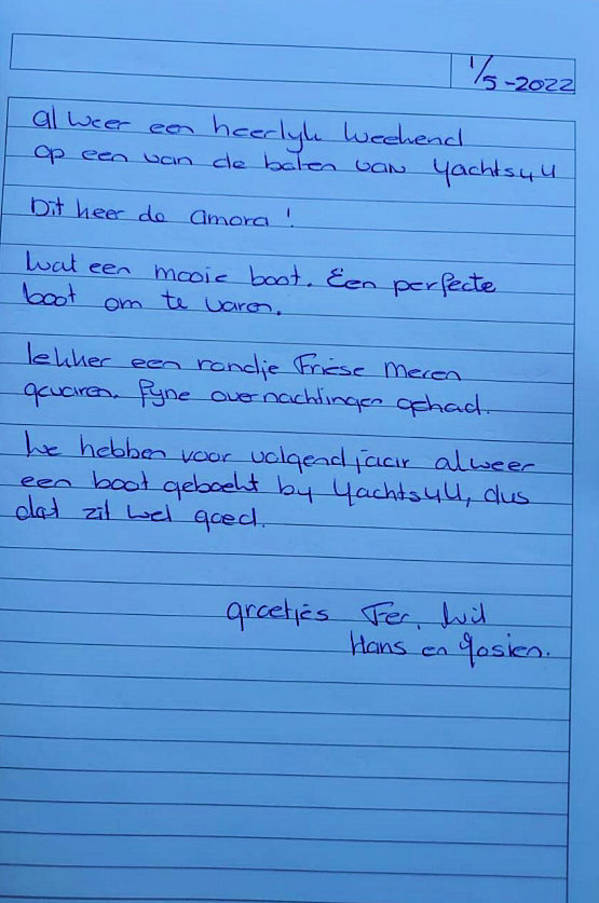 1/5-2022
al weer een heerlyk weekend
op een van de boten van Yachts4U
Dit keer de Amora!
Wat een mooie boot. Een perfecte
boot om te varen.
lekker een rondje Friese meren
gevaren. Fyne overnachtingen gehad.
We hebben voor volgend jaar alweer
een boot geboekt by Yachts4U, dus
dat zit wel goed.
groetjes Fer, Wil
Hans en Josien.